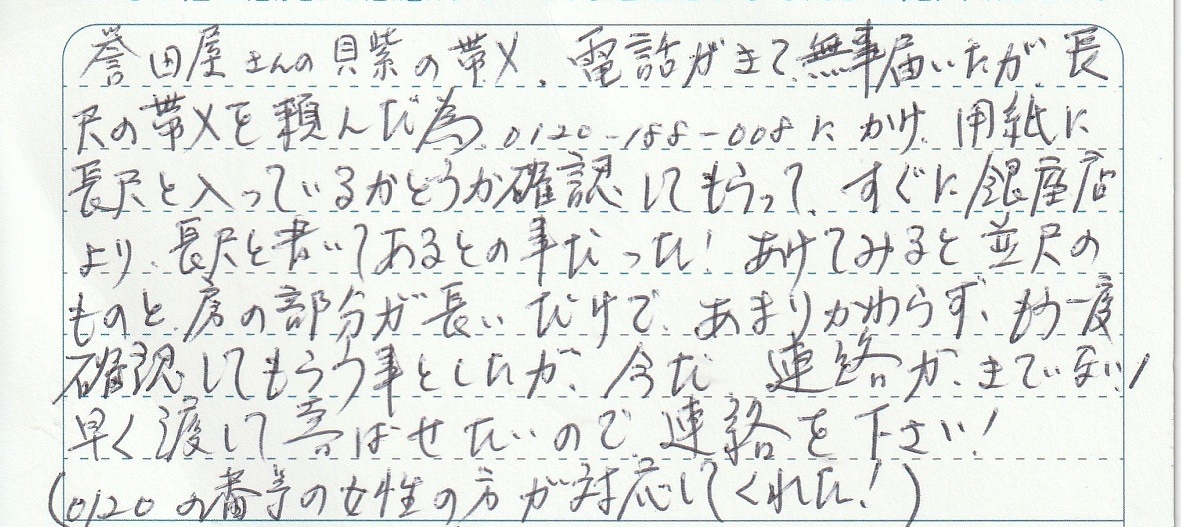 誉田屋さんの貝紫の帯〆、電話がきて、無事届いたが、長
尺の帯〆を頼んだ為、0120-188-008にかけ、用紙に
長尺と入っているかどうか確認してもらって、すぐに銀座店
より、長尺と書いてあるとの事だった!あけてみると並尺の
ものと、房の部分が長いだけで、あまりかわらず、もう一度
確認してもらう事としたが、今だ連絡が、きていない!
早く渡して喜ばせたいので、連絡を下さい!
(0120の番号の女性の方が対応してくれた!)